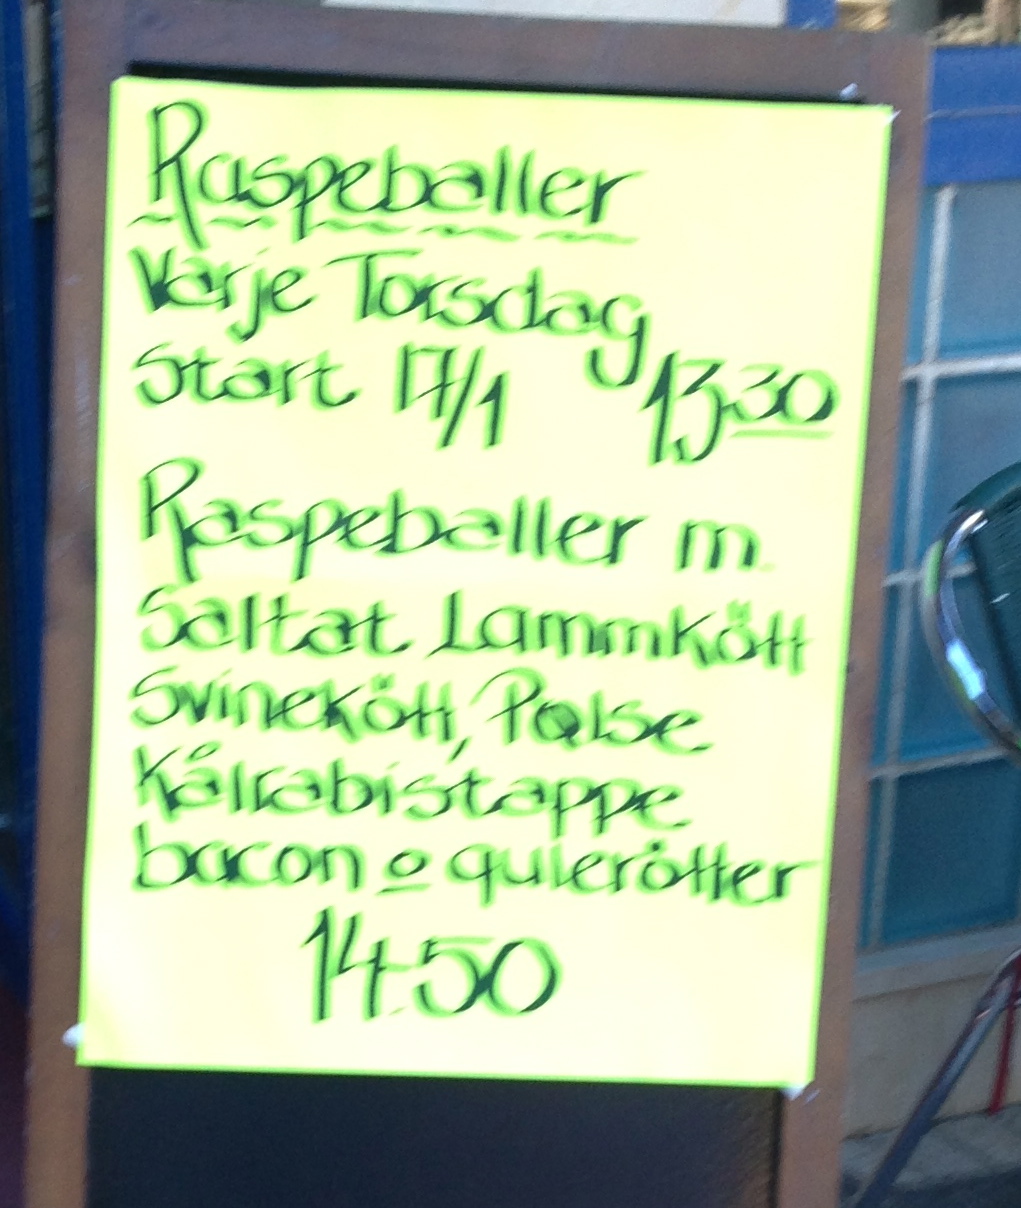 Raspeballer
Varje Torsdag
Start 17/1 13.30
Raspeballer m.
Saltat Lammkött
Svinekött, Pølse
Kålrabistappe
bacon o gulerötter
14.50